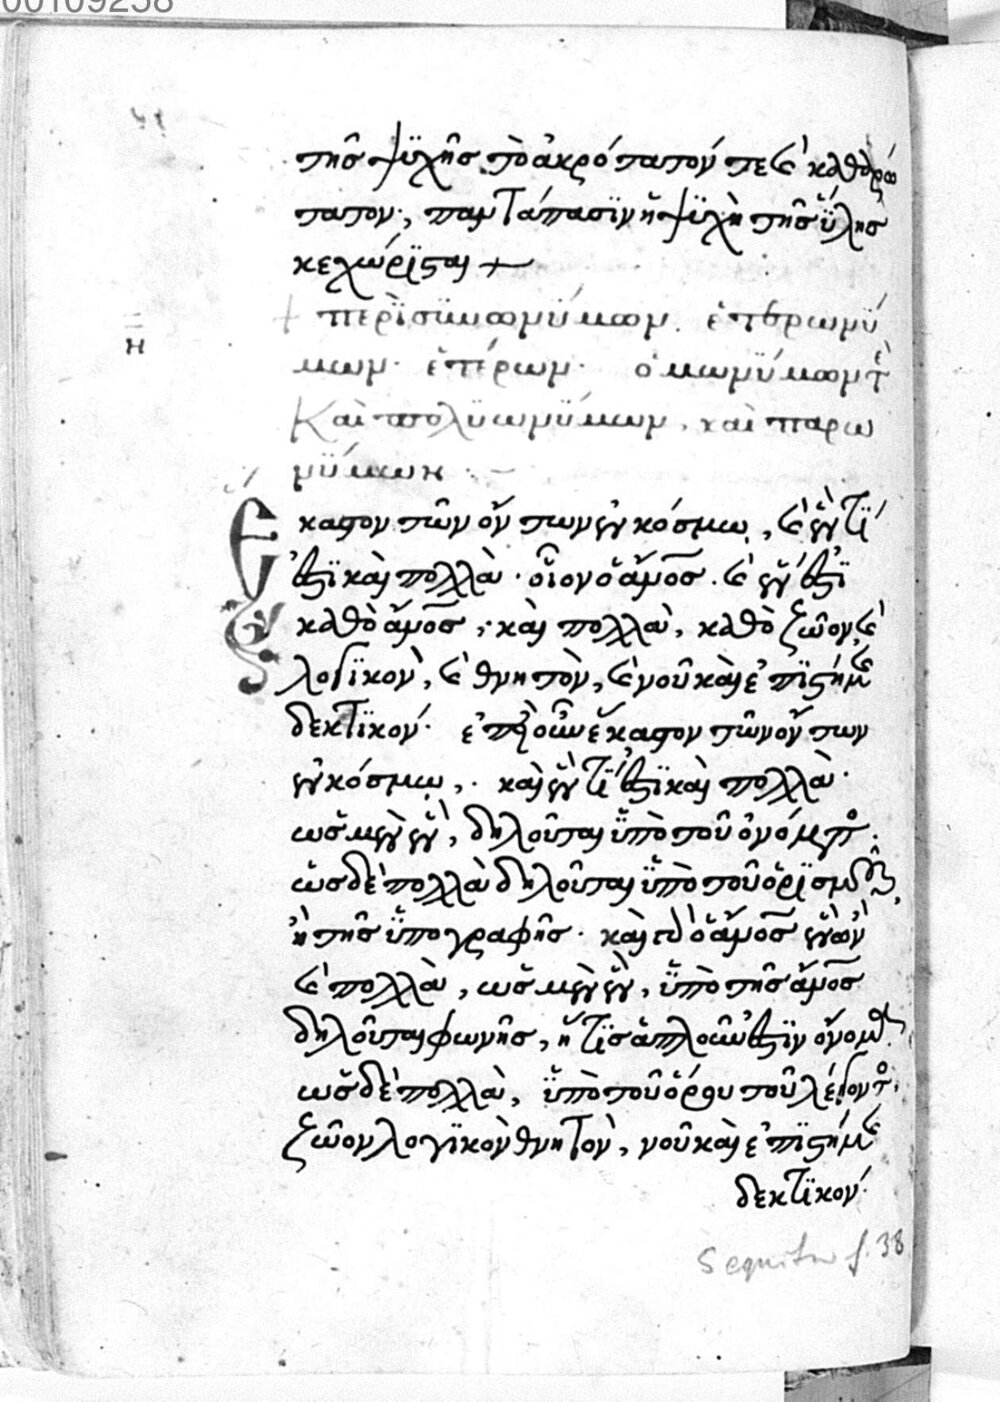 00109258
τῆς ψυχῆς τὸ ἀκρότατόν τε καὶ καθαρώ
τατον, παντάπασιν ἡ ψυχὴ τῆς ὕλης
κεχώρισται +
+ περὶ συνωνύμων. ἑτερωνύ
μων. ἑτέρων. ὁμωνύμων τὲ
Καὶ πολυωνύμων, καὶ παρω
νύμων
η
Ἕκαστον τῶν ὄντων ἐν κόσμω, καὶ ἕν τί
ἐστι καὶ πολλὰ. οἷον ὁ ἄνος. καὶ ἕν ἐστι
καθὸ ἄνος, καὶ πολλὰ, καθὸ ζῶον καὶ
λογικὸν, καὶ θνητὸν, καὶ νοῦ καὶ ἐπιστήμης
δεκτικόν. ἐπεὶ οὖν ἕκαστον τῶν ὄντων
ἐν κόσμω, καὶ ἕν τί ἐστι καὶ πολλὰ.
ὡς μὲν ἓν, δηλοῦται ὑπὸ τοῦ ὀνόματος.
ὡς δὲ πολλὰ δηλοῦται ὑπὸ τοῦ ὁρισμοῦ,
ἢ τῆς ὑπογραφῆς. καὶ ὁ ἄνος ἓν ὢν
καὶ πολλὰ, ὡς μὲν ἓν, ὑπὸ τῆς ἄνος
δηλοῦται φωνῆς, ἥτις ἁπλοῦν ἐστιν ὄνομα.
ὡς δὲ πολλὰ, ὑπὸ τοῦ ὅρου τοῦ λέγοντος.
ζῶον λογικὸν θνητὸν, νοῦ καὶ ἐπιστήμης
δεκτικόν.
Sequitur f. 38